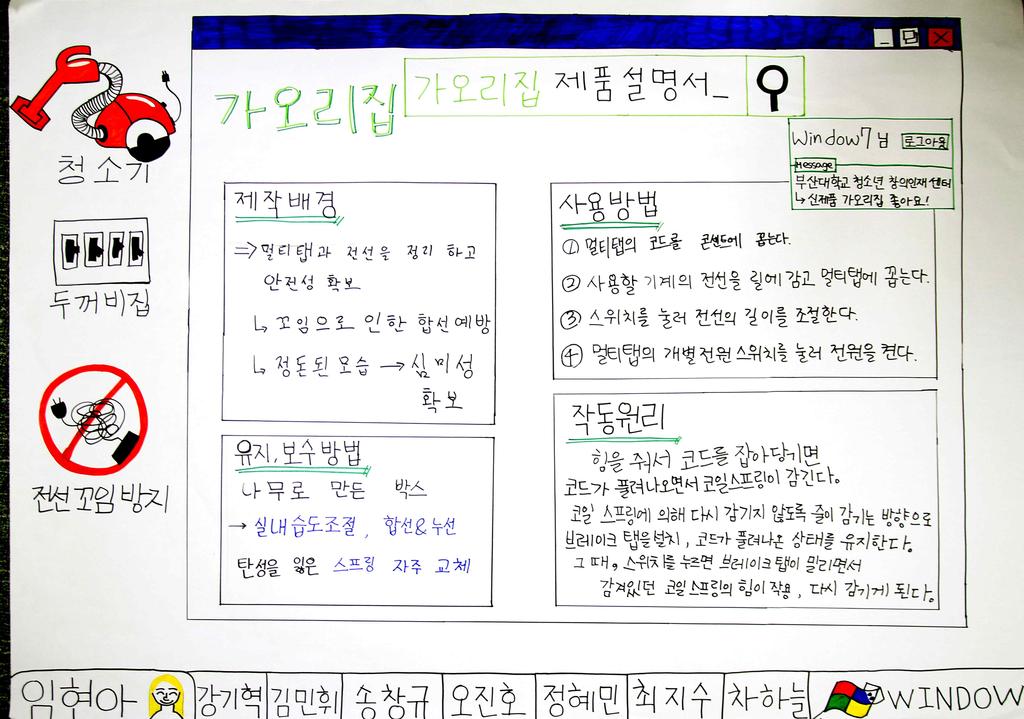 가오리집
가오리집 제품설명서_
Window7님 로그아웃
Message
부산대학교 청소년 창의인재센터
↳ 신제품 가오리집 좋아요!
청소기
두꺼비집
전선 꼬임 방지
제작배경
⇒ 멀티탭과 전선을 정리 하고
안전성 확보
↳ 꼬임으로 인한 합선예방
↳ 정돈된 모습 → 심미성
확보
유지, 보수방법
나무로 만든 박스
→ 실내습도조절, 합선&누선
탄성을 잃은 스프링 자주 교체
사용방법
① 멀티탭의 코드를 콘센트에 꼽는다.
② 사용할 기계의 전선을 릴에 감고 멀티탭에 꼽는다.
③ 스위치를 눌러 전선의 길이를 조절한다.
④ 멀티탭의 개별전원 스위치를 눌러 전원을 켠다.
작동원리
힘을 줘서 코드를 잡아당기면
코드가 풀려나오면서 코일스프링이 감긴다.
코일 스프링에 의해 다시 감기지 않도록 줄이 감기는 방향으로
브레이크 탭을 설치, 코드가 풀려나온 상태를 유지한다.
그 때, 스위치를 누르면 브레이크 탭이 밀리면서
감겨있던 코일 스프링의 힘이 작용, 다시 감기게 된다.
임현아 강기혁 김민휘 송창규 오진호 정혜민 최지수 차하늘 WINDOW